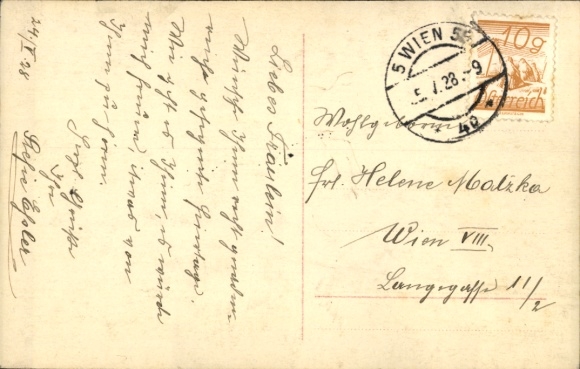 24./V. 28
Liebes Fräulein!
Wünsche Ihnen recht
recht gesegnete Feiertage.
Wie geht es Ihnen, es würde
mich freuen, etwas von
Ihnen zu hören.
Herzl. Grüße
Ihre
Wohlgeboren
Frl. Helene Matzka
Wien VIII.
Langegasse 11/2
5 WIEN 55
28.-9
40
10g
Österreich